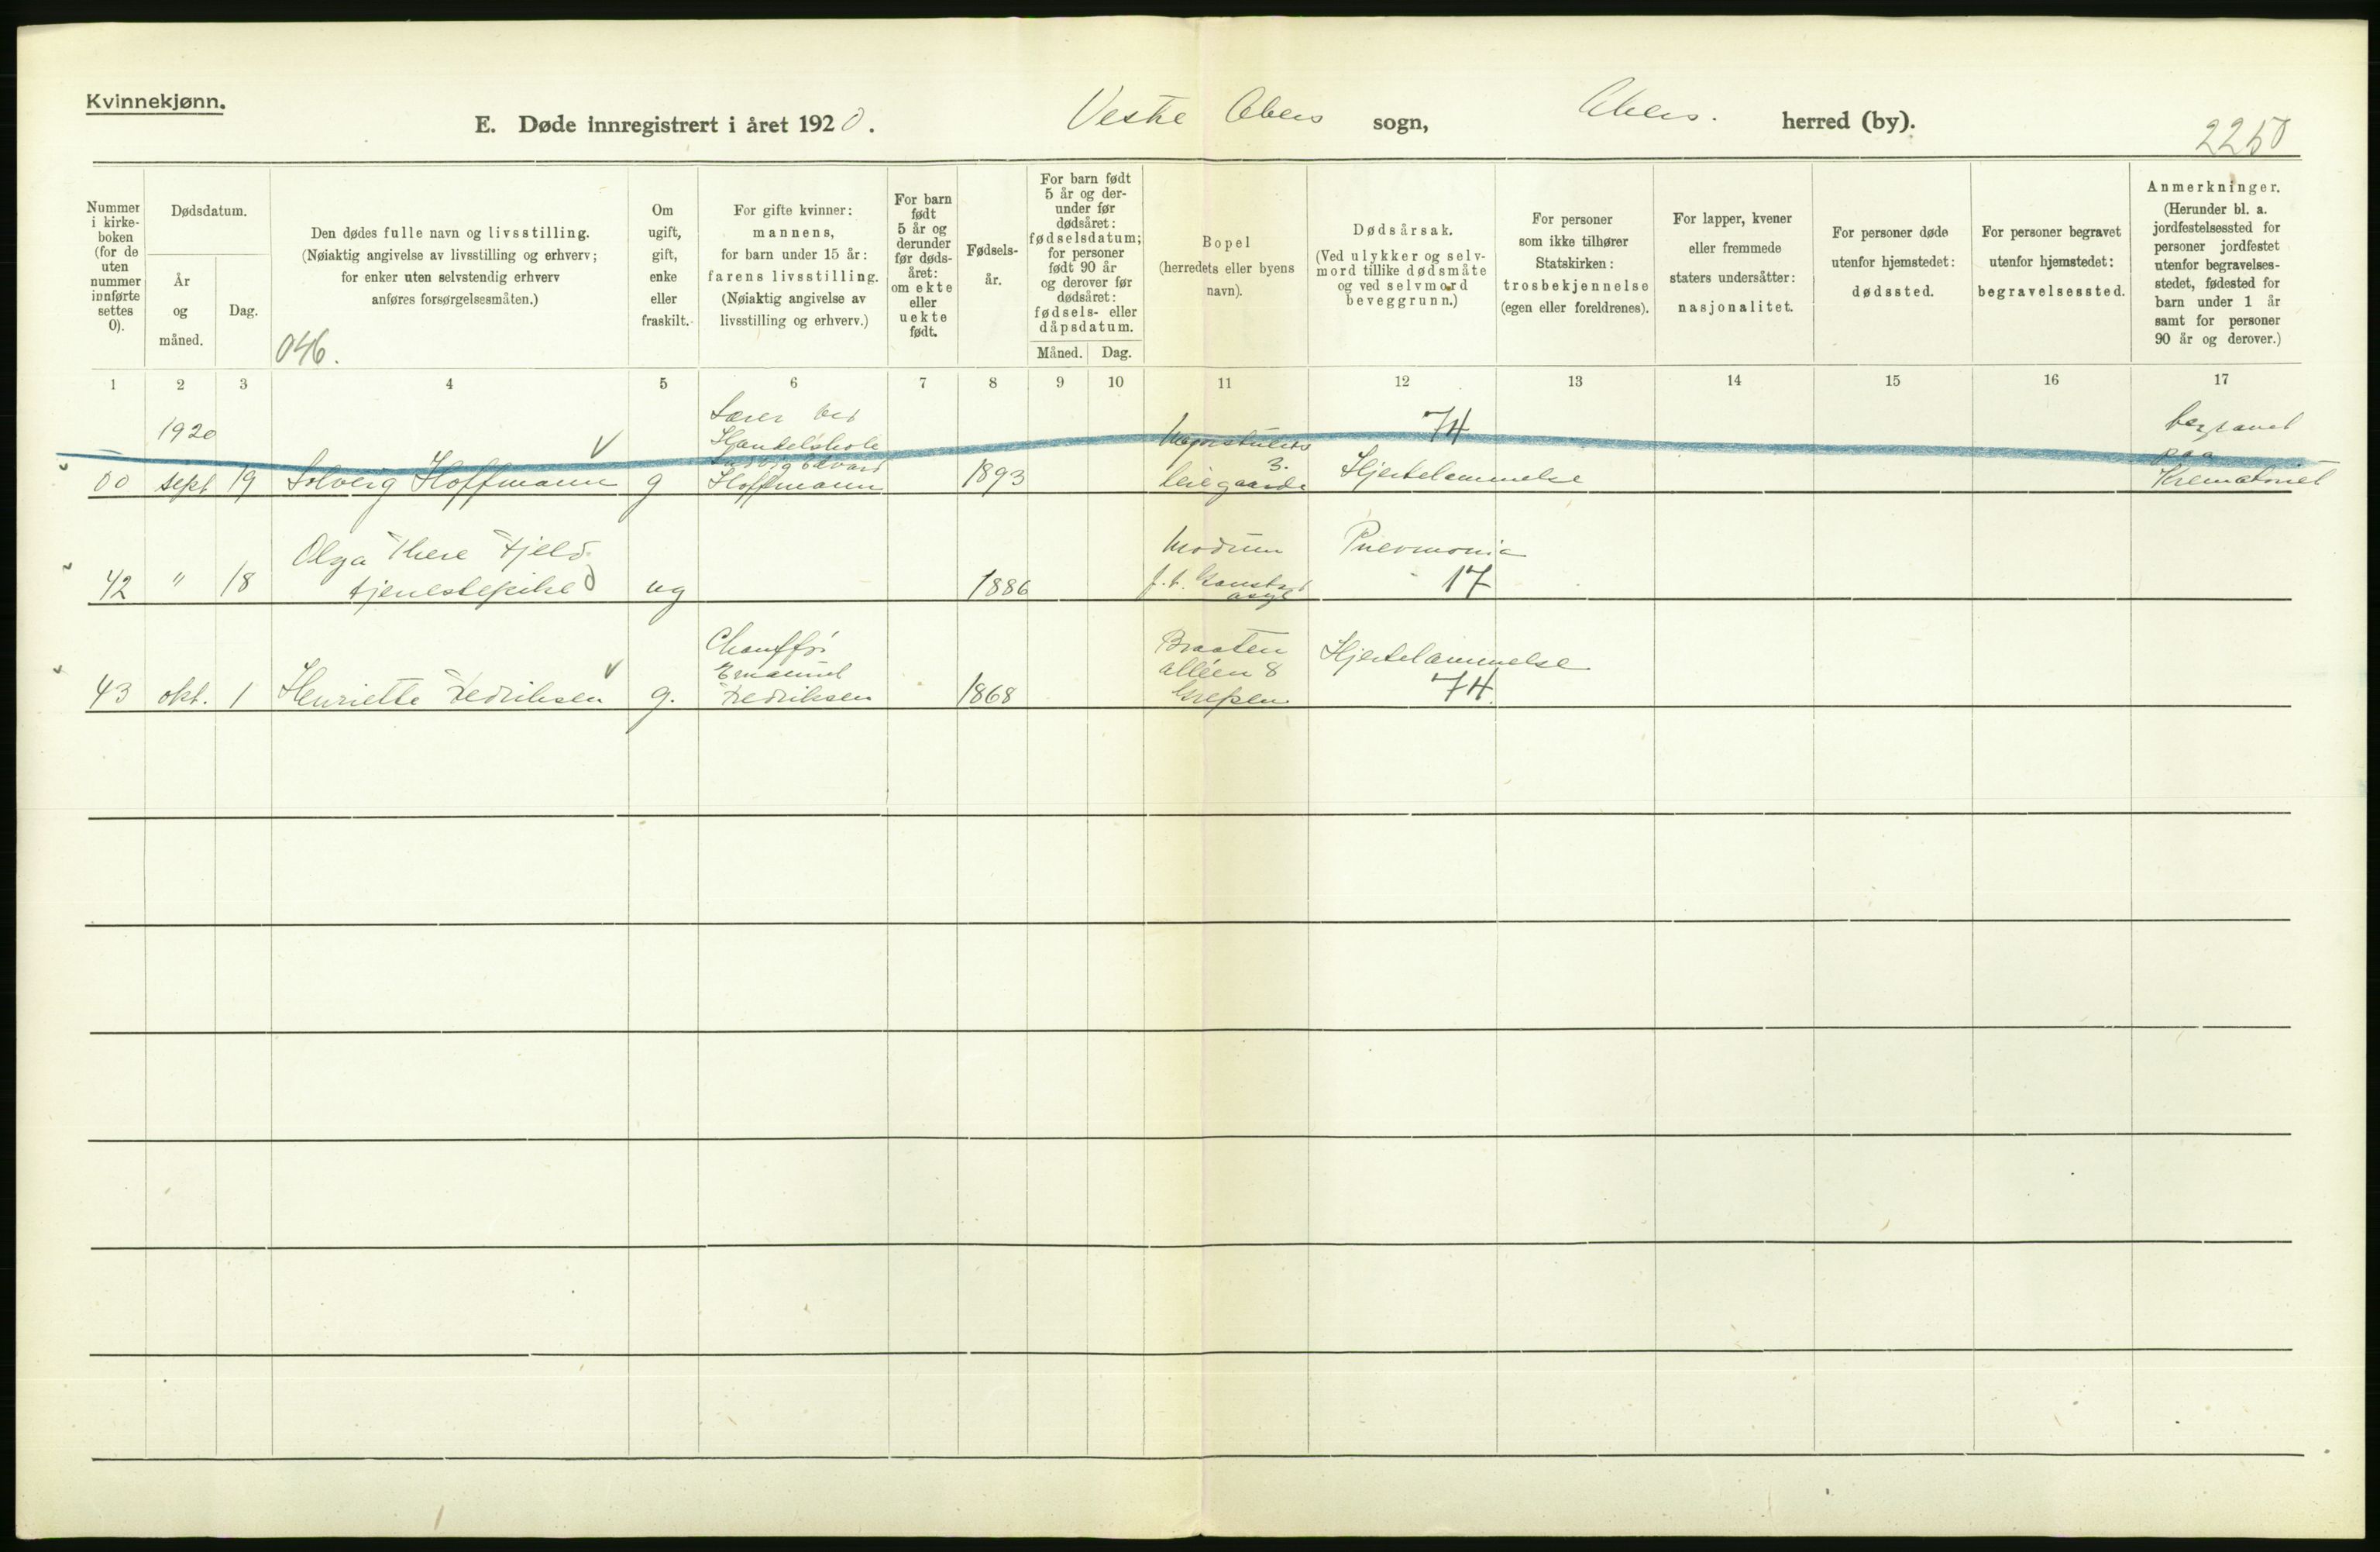 Kvinnekjønn.
E. Døde innregistrert i året 1920. Vestre Akers sogn, Akers. herred (by).
2250
Nummer i kirkeboken (for de uten nummer innførte settes 0).
Dødsdatum.
År og måned.
Dag.
Den dødes fulle navn og livsstilling.
(Nøiaktig angivelse av livsstilling og erhverv;
for enker uten selvstendig erhverv
anføres forsørgelsesmåten.)
046.
Om ugift, gift, enke eller fraskilt.
For gifte kvinner:
mannens,
for barn under 15 år:
farens livsstilling.
(Nøiaktig angivelse av
livsstilling og erhverv.)
For barn født 5 år og derunder før dødsåret: om ekte eller uekte født.
Fødselsår.
For barn født
5 år og derunder før
dødsåret:
fødselsdatum;
for personer
født 90 år
og derover før
dødsåret:
fødsels- eller
dåpsdatum.
Måned. Dag.
Bopel
(herredets eller byens
navn).
Dødsårsak.
(Ved ulykker og selvmord tillike dødsmåte
og ved selvmord
beveggrunn.)
For personer
som ikke tilhører
Statskirken:
trosbekjennelse
(egen eller foreldrenes).
For lapper, kvener
eller fremmede
staters undersåtter:
nasjonalitet.
For personer døde
utenfor hjemstedet:
dødssted.
For personer begravet
utenfor hjemstedet:
begravelsessted.
Anmerkninger.
(Herunder bl. a.
jordfestelsessted for
personer jordfestet
utenfor begravelsesstedet, fødested for
barn under 1 år
samt for personer
90 år og derover.)
1 2 3 4 5 6 7 8 9 10 11 12 13 14 15 16 17
1920
Lærer ved
74
begravet
Handelskole
Ludvig Edvard
3.
paa
00 sept 19 Solveig Hoffmann g Hoffmann 1893 Hjertelammelse Krematoriet
Olga There Fjeld
Modum
Pneumonia
42 " 18 tjenestepike ug 1886 Gaustad asyl 17
Chauffør
Braaten
Emanuel
alléen 8
Hjertelammelse
43 okt. 1 Henriette Fedriksen g. Fedriksen 1868 Grefsen 74.